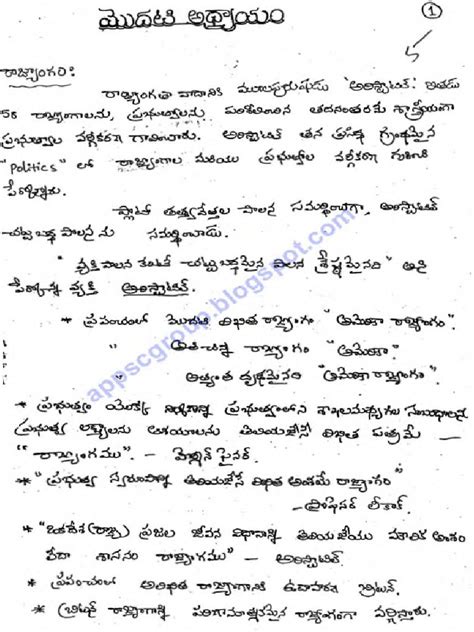 మొదటి అధ్యాయం
1
రాజ్యాంగం:
రాజ్యాంగతా వాదానికి మూలపురుషుడు 'అరిస్టాటిల్'. ఇతడు
58 రాజ్యాంగాలను, ప్రభుత్వాలను పరిశీలించిన తదనంతరమే శాస్త్రీయంగా
ప్రభుత్వాల వర్గీకరణ గావించాడు. అరిస్టాటిల్ తన గ్రంథమైన
"Politics" లో రాజ్యాంగాల మరియు ప్రభుత్వాల వర్గీకరణ గురించి
పేర్కొన్నాడు.
ప్లాటో తత్వవేత్తల పాలన సమర్థించగా, అరిస్టాటిల్
చట్టబద్ధ పాలనను సమర్థించాడు.
"వ్యక్తి పాలన కంటే చట్టబద్ధమైన పాలన శ్రేష్ఠమైనది" అని
పేర్కొన్న వ్యక్తి అరిస్టాటిల్.
* ప్రపంచంలో మొదటి లిఖిత రాజ్యాంగం "అమెరికా రాజ్యాంగం".
అతిచిన్న రాజ్యాంగం "అమెరికా".
అత్యంత దృఢమైనది "అమెరికా రాజ్యాంగం".
* ప్రభుత్వం యొక్క ప్రభుత్వంలోని శాఖలమధ్యగల సంబంధాలను
ప్రభుత్వ లక్ష్యాలను ఆశయాలను తెలియజేసే లిఖిత పత్రమే —
"రాజ్యాంగము" -
* "ప్రభుత్వ స్వరూపాన్ని తెలియజేసే లిఖిత అంశమే రాజ్యాంగం"
- ప్రొఫెసర్ లీకాక్.
* "ఒకదేశ (రాజ్య) ప్రజల జీవన విధానాన్ని తెలియజేయు మౌలిక అంశం
లేదా శాసనం రాజ్యాంగము" - అరిస్టాటిల్.
* ప్రపంచంలో అలిఖిత రాజ్యాంగానికి ఉదాహరణ బ్రిటన్.
* బ్రిటిష్ రాజ్యాంగాన్ని పరిణామాత్మకమైన రాజ్యాంగంగా వర్ణిస్తారు.
appscgroup.blogspot.com